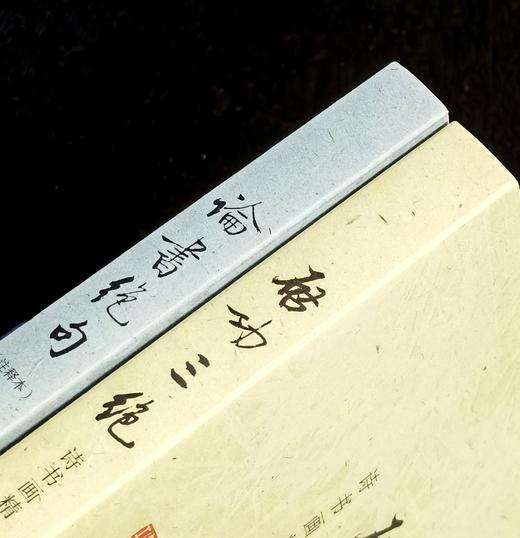 論書絕句
注释本）
启功三绝
诗书画精
诗书画